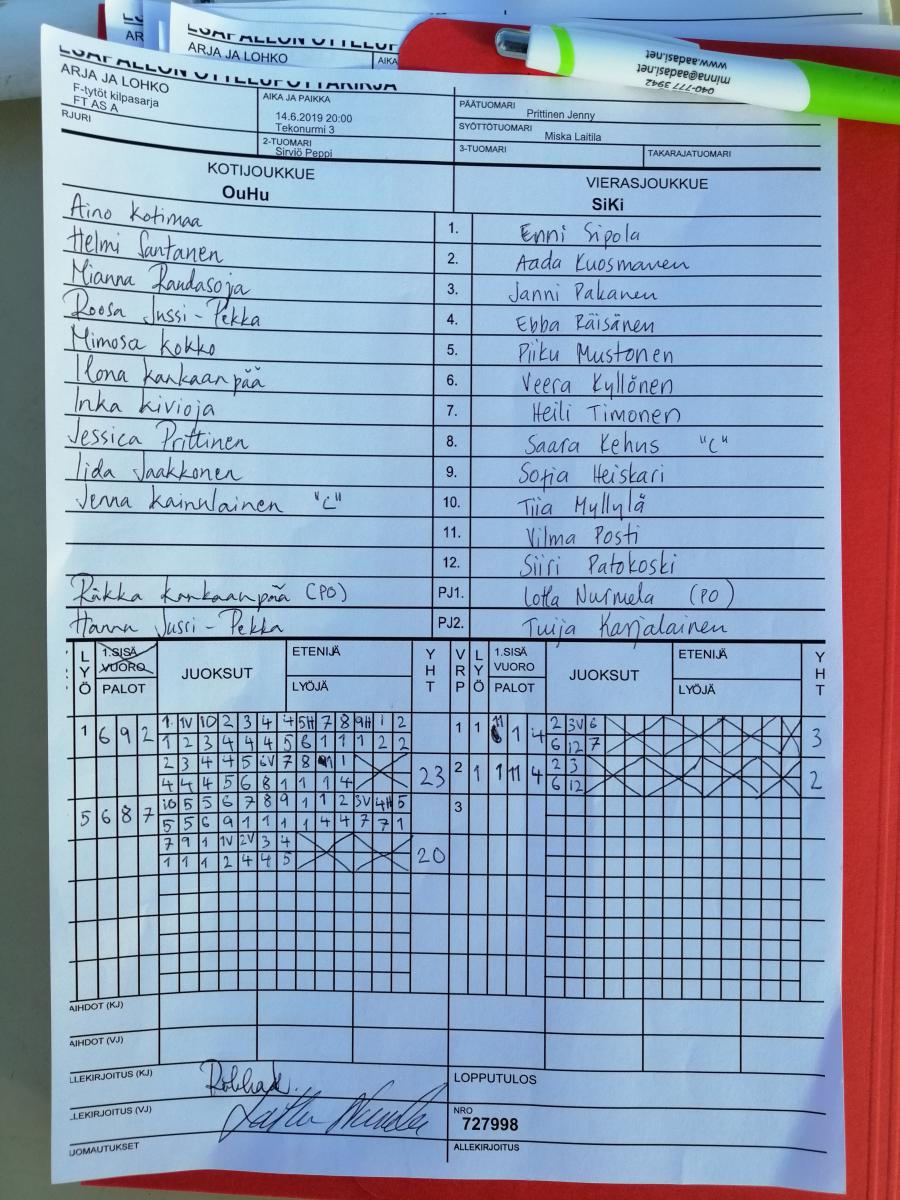 ARJA JA LOHKO
AIKA
040-777 3942
minna@aadasi.net
www.aadasi.net
PESÄPALLON OTTELUPÖYTÄKIRJA
ARJA JA LOHKO
F-tytöt kilpasarja
FT AS A
RJURI
AIKA JA PAIKKA
14.6.2019 20:00
Tekonurmi 3
2-TUOMARI
Sirviö Peppi
PÄÄTUOMARI Prittinen Jenny
SYÖTTÖTUOMARI Miska Laitila
3-TUOMARI TAKARAJATUOMARI
KOTIJOUKKUE VIERASJOUKKUE
OuHu SiKi
Aino Kotimaa 1. Enni Sipola
Helmi Santanen 2. Aada Kuosmanen
Mianna Raudasoja 3. Janni Pakanen
Roosa Jussi-Pekka 4. Ebba Räisänen
Mimosa Kokko 5. Piiku Mustonen
Ilona Kankaanpää 6. Veera Kyllönen
Inka Kivioja 7. Heili Timonen
Jessica Prittinen 8. Saara Kehus "C"
Iida Jaakkonen 9. Sofia Heiskari
Jenna Kainulainen "C" 10. Tiia Myllylä
11. Vilma Posti
12. Siiri Patokoski
Räkka Kankaanpää (PO) PJ1. Lotta Nurmela (PO)
Hannu Jussi-Pekka PJ2. Tuija Karjalainen
LYÖ 1.SISÄ VUORO PALOT JUOKSUT ETENIJÄ LYÖJÄ YHT VRP LYÖ 1.SISÄ VUORO PALOT JUOKSUT ETENIJÄ LYÖJÄ YHT
1 1V 10 2 3 4 4 5H 7 8 9H 1 2 2 3V 6
1 6 9 2 1 2 3 4 4 4 5 6 1 1 1 2 2 1 1 11 1 4 6 12 7 3
2 3 4 4 5 6V 7 8 1 2 3
4 4 4 5 6 8 1 1 1 4 23 2 1 1 11 4 6 12 2
10 5 5 6 7 8 9 1 1 2 3V 4H 5
5 6 8 7 5 5 6 9 1 1 1 1 4 4 7 7 1 3
7 9 1 1V 2V 3 4
1 1 1 2 4 4 5 20
AIHDOT (KJ)
AIHDOT (VJ)
LLEKIRJOITUS (KJ)
LOPPUTULOS
LLEKIRJOITUS (VJ)
NRO
727998
UOMAUTUKSET
ALLEKIRJOITUS